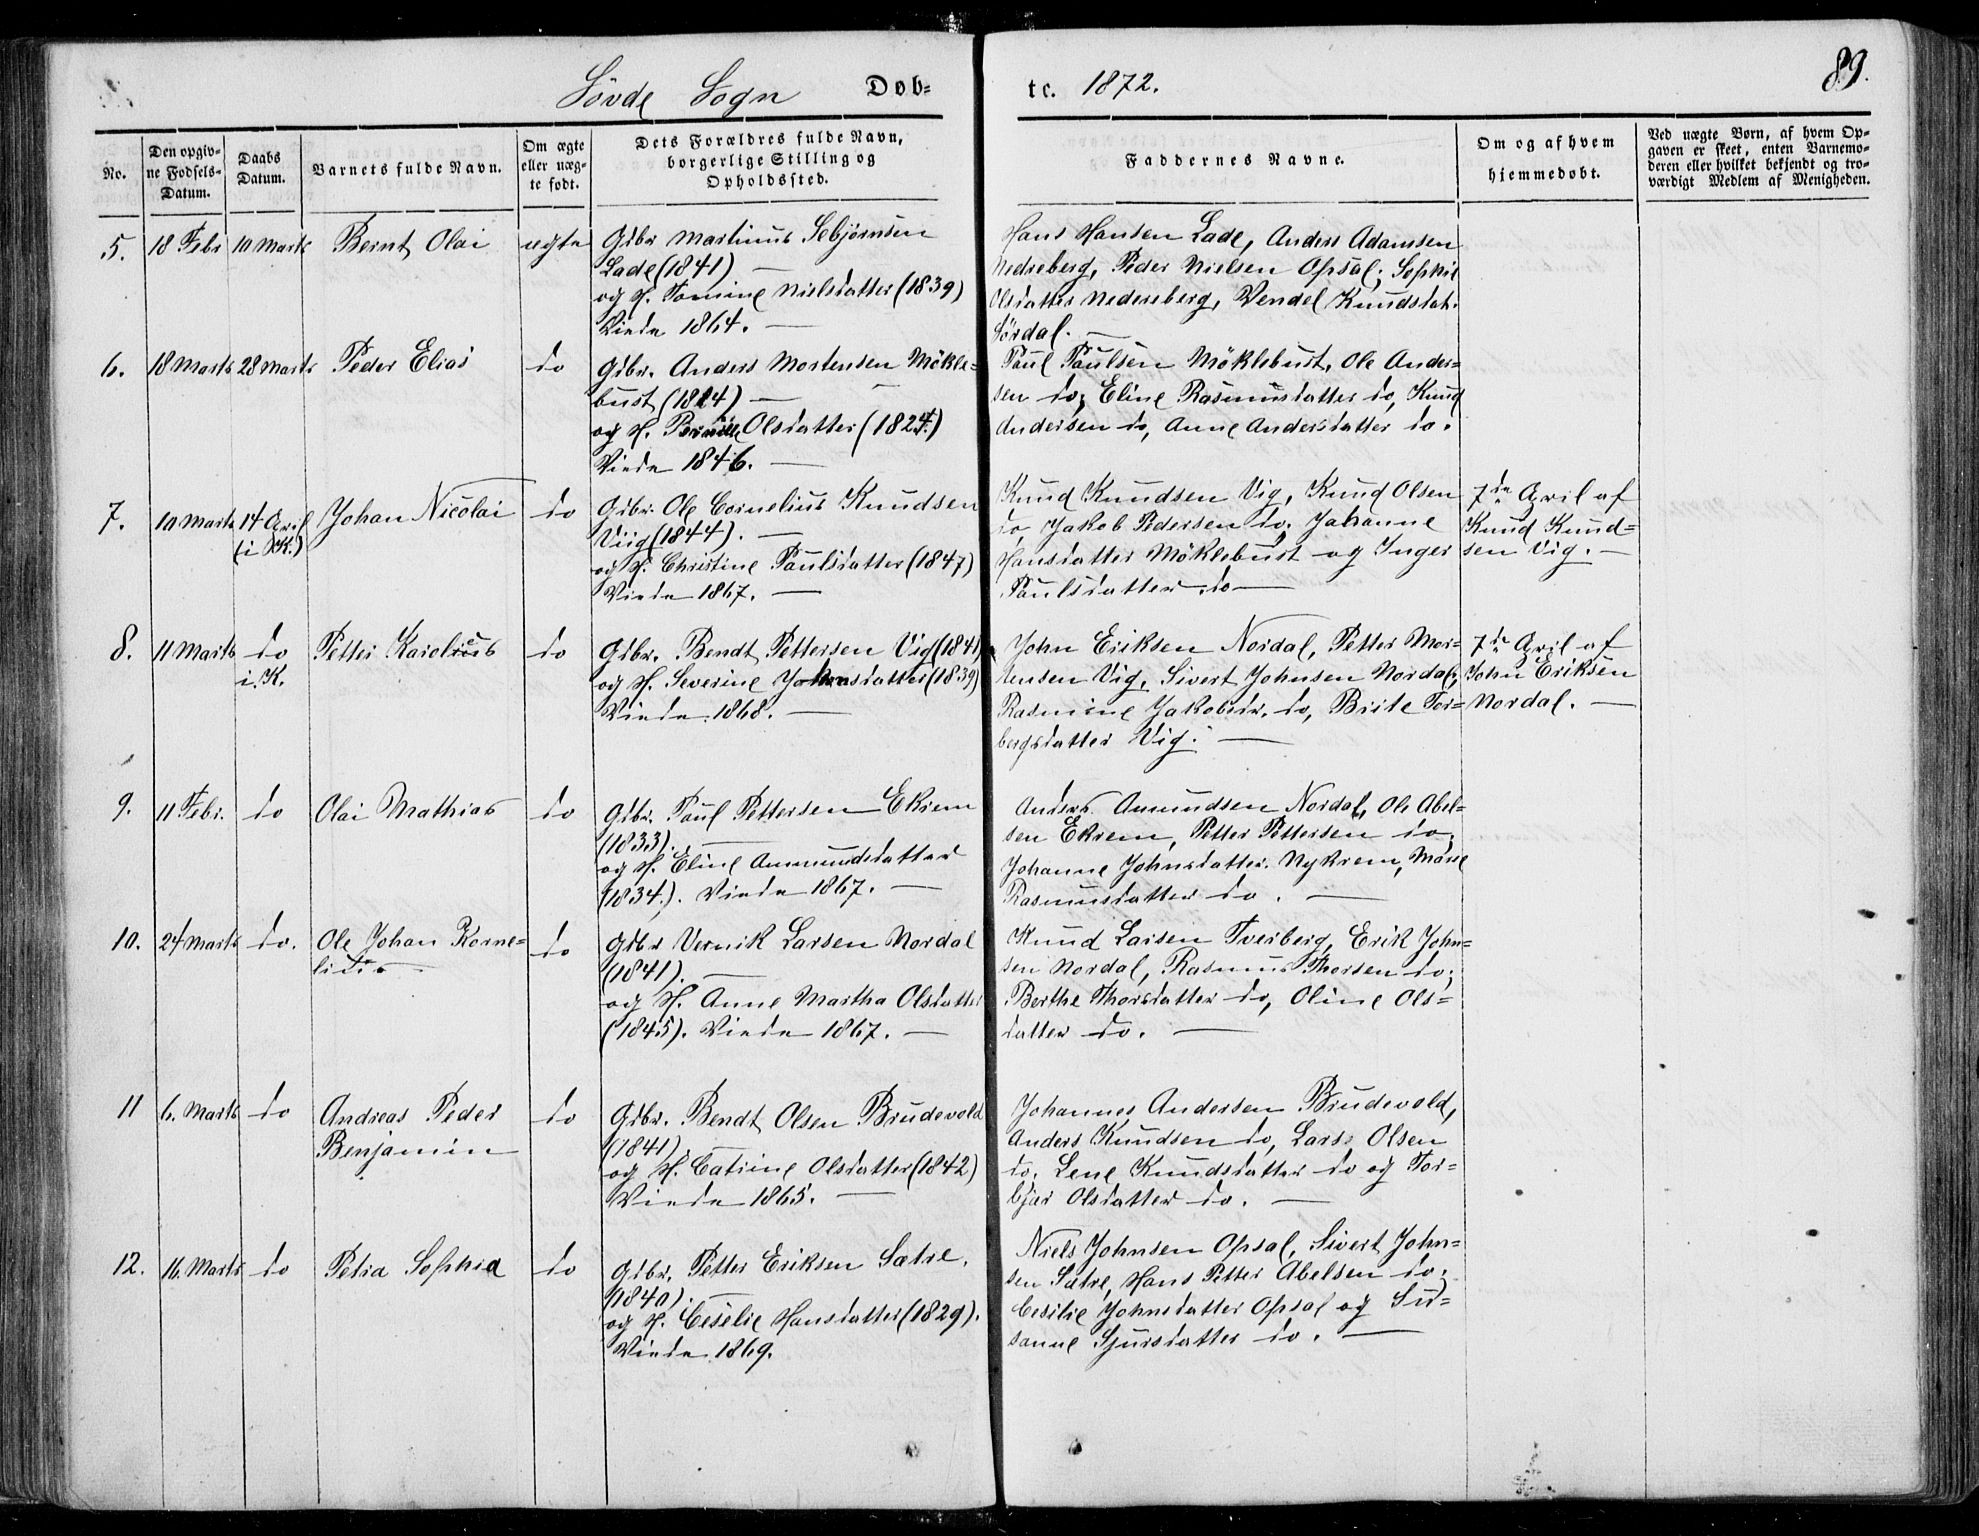 Søvde Sogn Døb=
te. 1872.
89.
No.
Den opgiv-
ne Fødsels-
Datum.
Daabs
Datum.
Barnets fulde Navn.
Om ægte
eller uæg-
te født.
Dets Forældres fulde Navn,
borgerlige Stilling og
Opholdssted.
Faddernes Navne.
Om og af hvem
hjemmedøbt.
Ved uægte Børn, af hvem Op-
gaven er skeet, enten Barnemo-
deren eller hvilket bekjendt og tro-
værdigt Medlem af Menigheden.
5. 18 Febr 10 Marts Bernt Olai ægte
Gdbr Martinus Sebjørnsen
Lade (1841) —
og H. Tomine Nielsdatter (1839)
Viede 1864. —
Hans Hansen Lade, Anders Adamsen
Nedreberg, Peder Nielsen Opsal; Sophie
Olsdatter Nedreberg, Vendel Knudsdat.
Sørdal. —
6. 18 Marts 28 Marts Peder Elias do
Gdbr. Anders Mortensen Mökle=
bust (1824) —
og H. Pernille Olsdatter (1824.)
Viede 1846. —
Paul Paulsen Möklebust, Ole Ander=
sen do; Eline Rasmusdatter do, Knud
Andersen do, Anne Andersdatter do.
7. 10 Marts 14 April Johan Nicolai do
(i K.)
Gdbr. Ole Cornelius Knudsen
Viig (1844). —
og H. Christine Paulsdatter (1847)
Viede 1867. —
Knud Knudsen Vig, Knud Olsen
do, Jakob Pedersen do; Johanne
Hansdatter Möklebust og Inger
Paulsdatter do —
7de April af
Knud Knud=
sen Vig. —
8. 11 Marts do Petter Karolius do
i. K.
Gdbr. Bendt Pettersen Vig (1841)
og H. Severine Johnsdatter (1839)
Viede 1868. —
John Eriksen Nordal, Petter Mor=
tensen Vig, Sivert Johnsen Nordal;
Rasmine Jakobsdr. do, Brite Tor=
bergsdatter Vig. —
7de April af
John Eriksen
Nordal. —
9. 11 Febr. do Olai Mathias do
Gdbr. Paul Pettersen Ekrem
(1833). —
og H. Eline Ammundsdatter
(1834.). Viede 1867. —
Anders Amundsen Nordal, Ole Abel=
sen Ekrem, Petter Pettersen do;
Johanne Johnsdatter Nykrem, Marie
Rasmusdatter do. —
10. 24 Marts do. Ole Johan Korne= do
lius —
Gdbr Vernik Larsen Nordal
(1841). —
og H. Anne Martha Olsdatter
(1845). Viede 1867. —
Knud Larsen Tverberg, Erik John=
sen Nordal, Rasmus Thorsen do;
Berthe Thorsdatter do, Oline Ols=
datter do. —
11 6. Marts do Andreas Peder do
Benjamin
Gdbr. Bendt Olsen Brudevold
(1841) —
og H. Catrine Olsdatter (1842)
Viede 1865. —
Johannes Andersen Brudevold,
Anders Knudsen do, Lars Olsen
do; Lene Knudsdatter do og Tor=
bjør Olsdatter do. —
12. 16. Marts do Petra Sophia do
Gdbr. Petter Eriksen Sætre.
(1840). —
og H. Ceselie Hansdatter (1829).
Viede 1869.
Niels Johnsen Opsal, Sivert John=
sen Sætre, Hans Petter Abelsen do;
Cesilie Johnsdatter Opsal og Su=
sanne Sjursdatter do. —